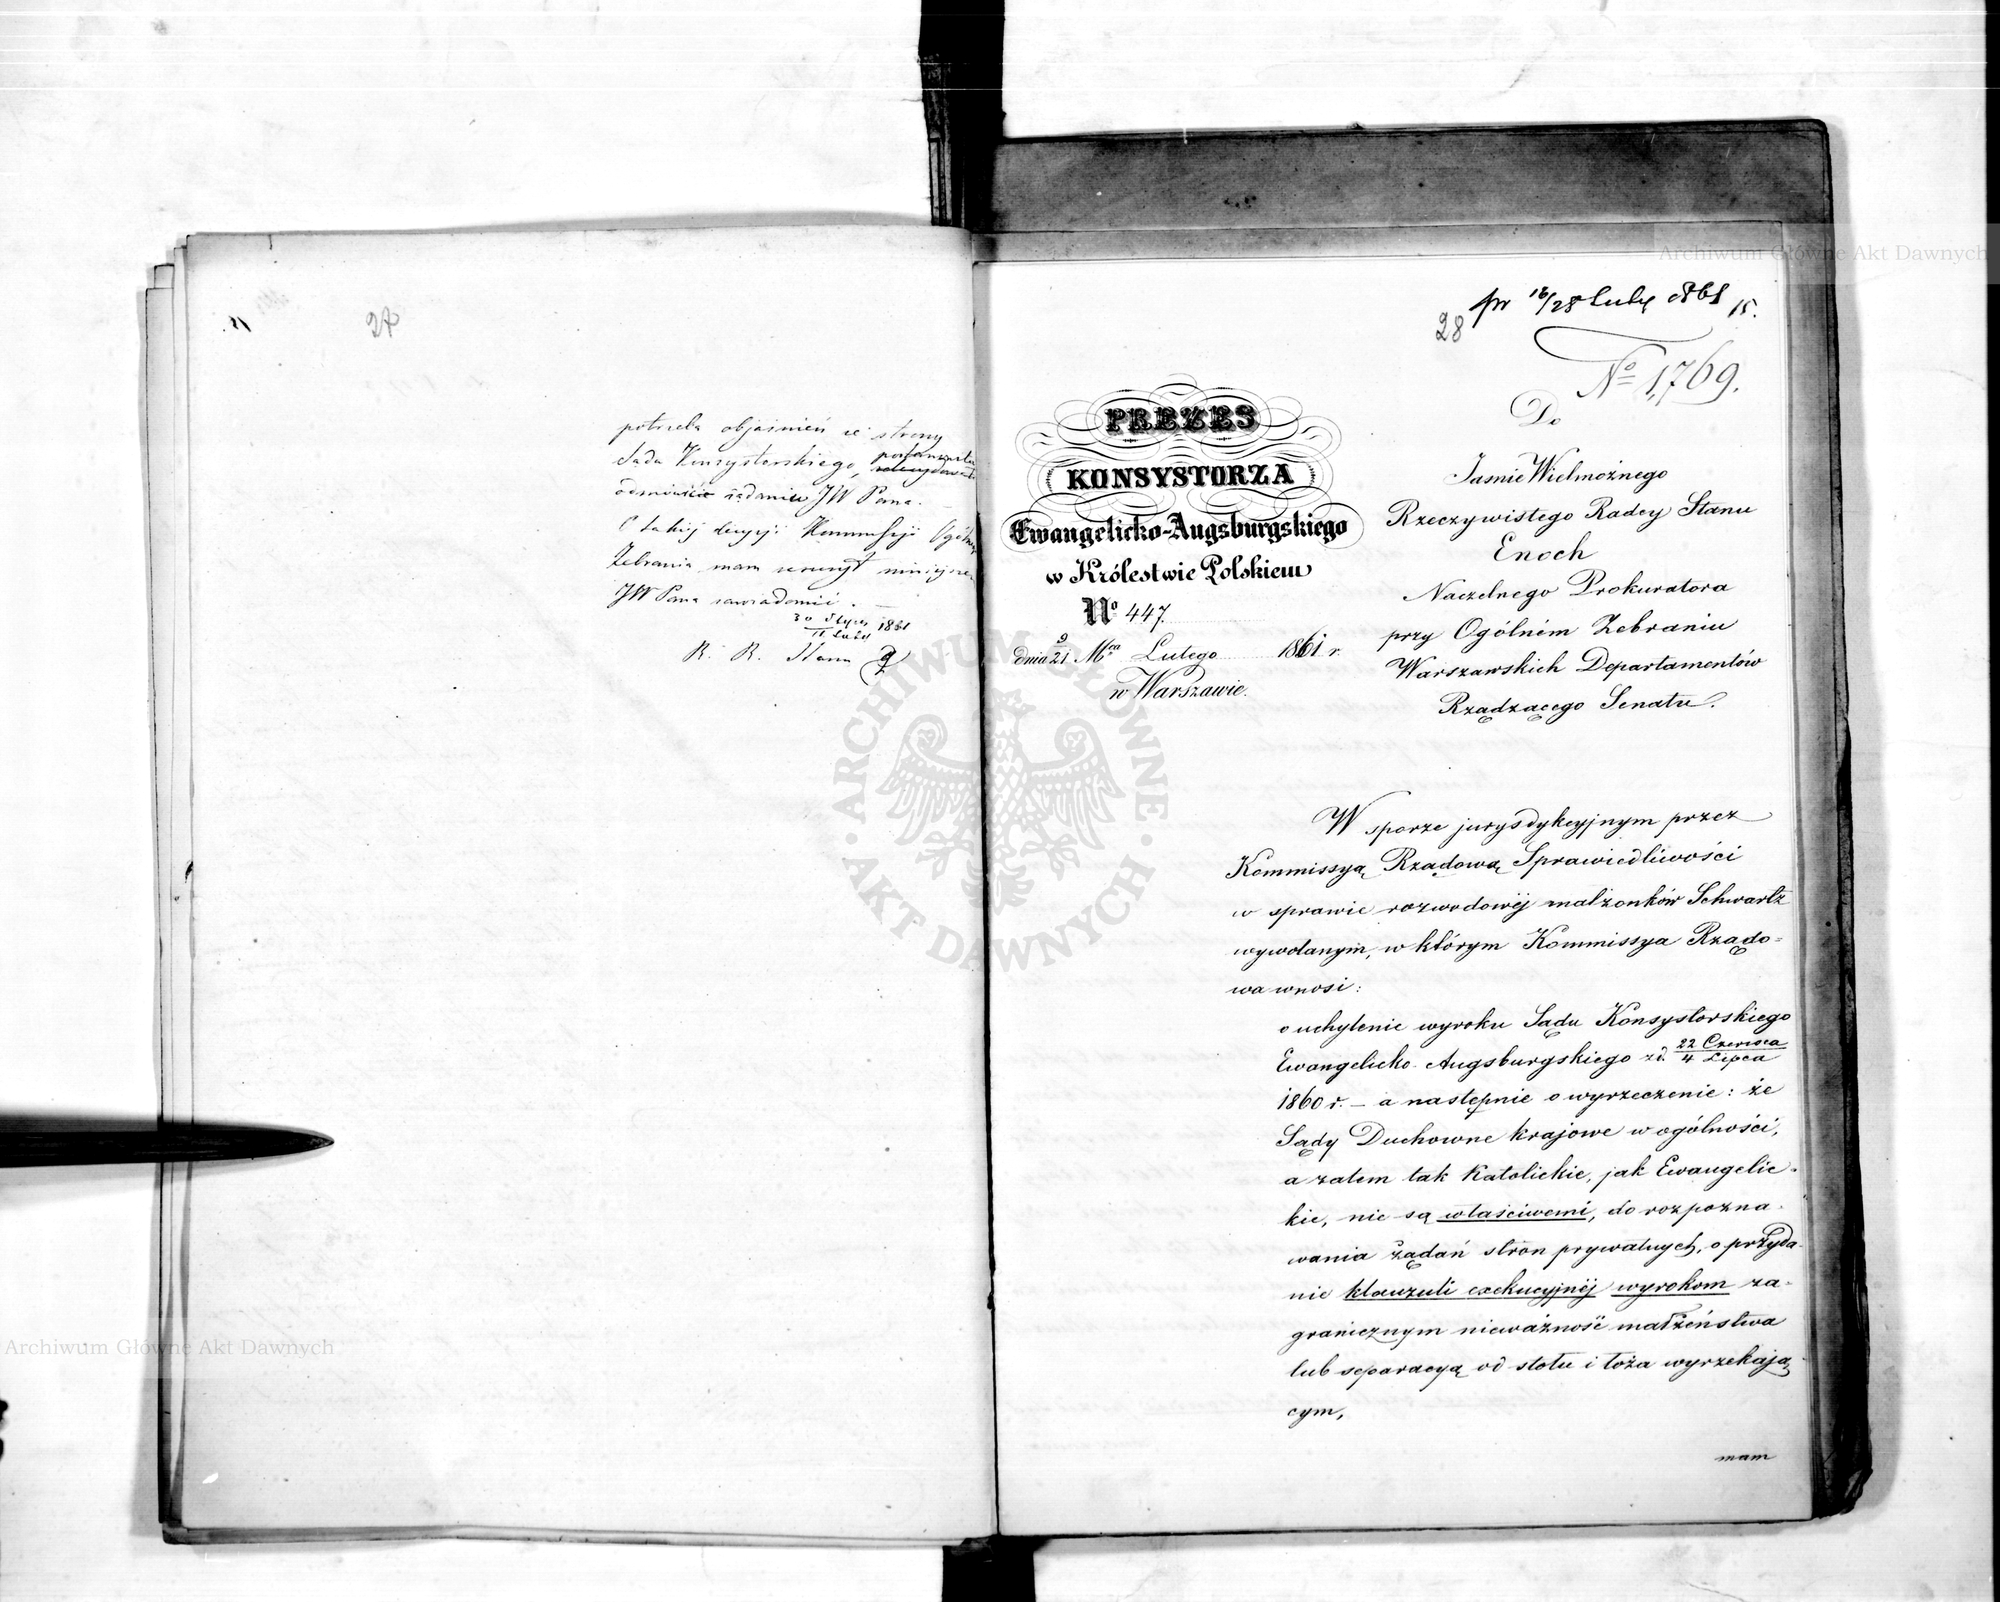 27
potrzeba objaśnień ze strony
Sądu Konsystorskiego, postanowiła
odmówić żądaniu JW Pana.
O takiéj decyzji Kommissji Ogólnego
Zebrania mam zaszczyt niniejszem
JW Pana zawiadomić.
30 Stycz 1861
11 Luty
R. R. Stanu
28
pr 16/28 Luty 1861
15.
No 1,769.
PREZES
KONSYSTORZA
Ewangelicko-Augsburgskiego
w Królestwie Polskiem
No 447.
dnia 9/21 Mca Lutego 1861 r.
w Warszawie.
Do
Jaśnie Wielmożnego
Rzeczywistego Radcy Stanu
Enoch
Naczelnego Prokuratora
przy Ogólném Zebraniu
Warszawskich Departamentów
Rządzącego Senatu.
W sporze jurysdykcyjnym przez
Kommissyą Rządową Sprawiedliwości
w sprawie rozwodowéj małżonków Schwartz
wywołanym, w którym Kommissya Rządo=
wa wnosi:
o uchylenie wyroku Sądu Konsystorskiego
Ewangelicko-Augsburgskiego z d. 22 Czerwca/4 Lipca
1860 r. – a następnie o wyrzeczenie: że
Sądy Duchowne krajowe w ogólności,
a zatem tak Katolickie, jak Ewangelic-
kie, nie są właściwemi, do rozpozna-
wania żądań stron prywatnych, o przyda-
nie klauzuli exekucyjnéj wyrokom za-
granicznym nieważność małżeństwa
lub separacyą od stołu i łoża wyrzekają-
cym,
mam
Archiwum Główne Akt Dawnych
Archiwum Główne Akt Dawnych
ARCHIWUM GŁÓWNE · AKT DAWNYCH ·